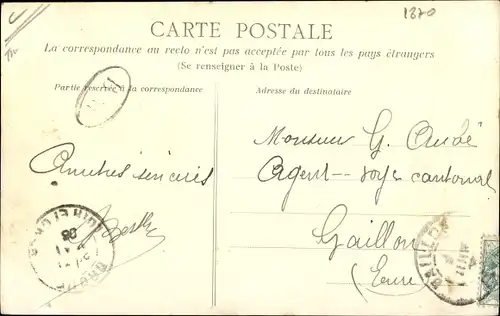 1370
CARTE POSTALE
La correspondance au recto n'est pas acceptée par tous les pays étrangers
(Se renseigner à la Poste)
Partie réservée à la correspondance
Adresse du destinataire
Monsieur G.
Agent-voyer cantonal
Amitiés sincères
Gaillon
(Eure)